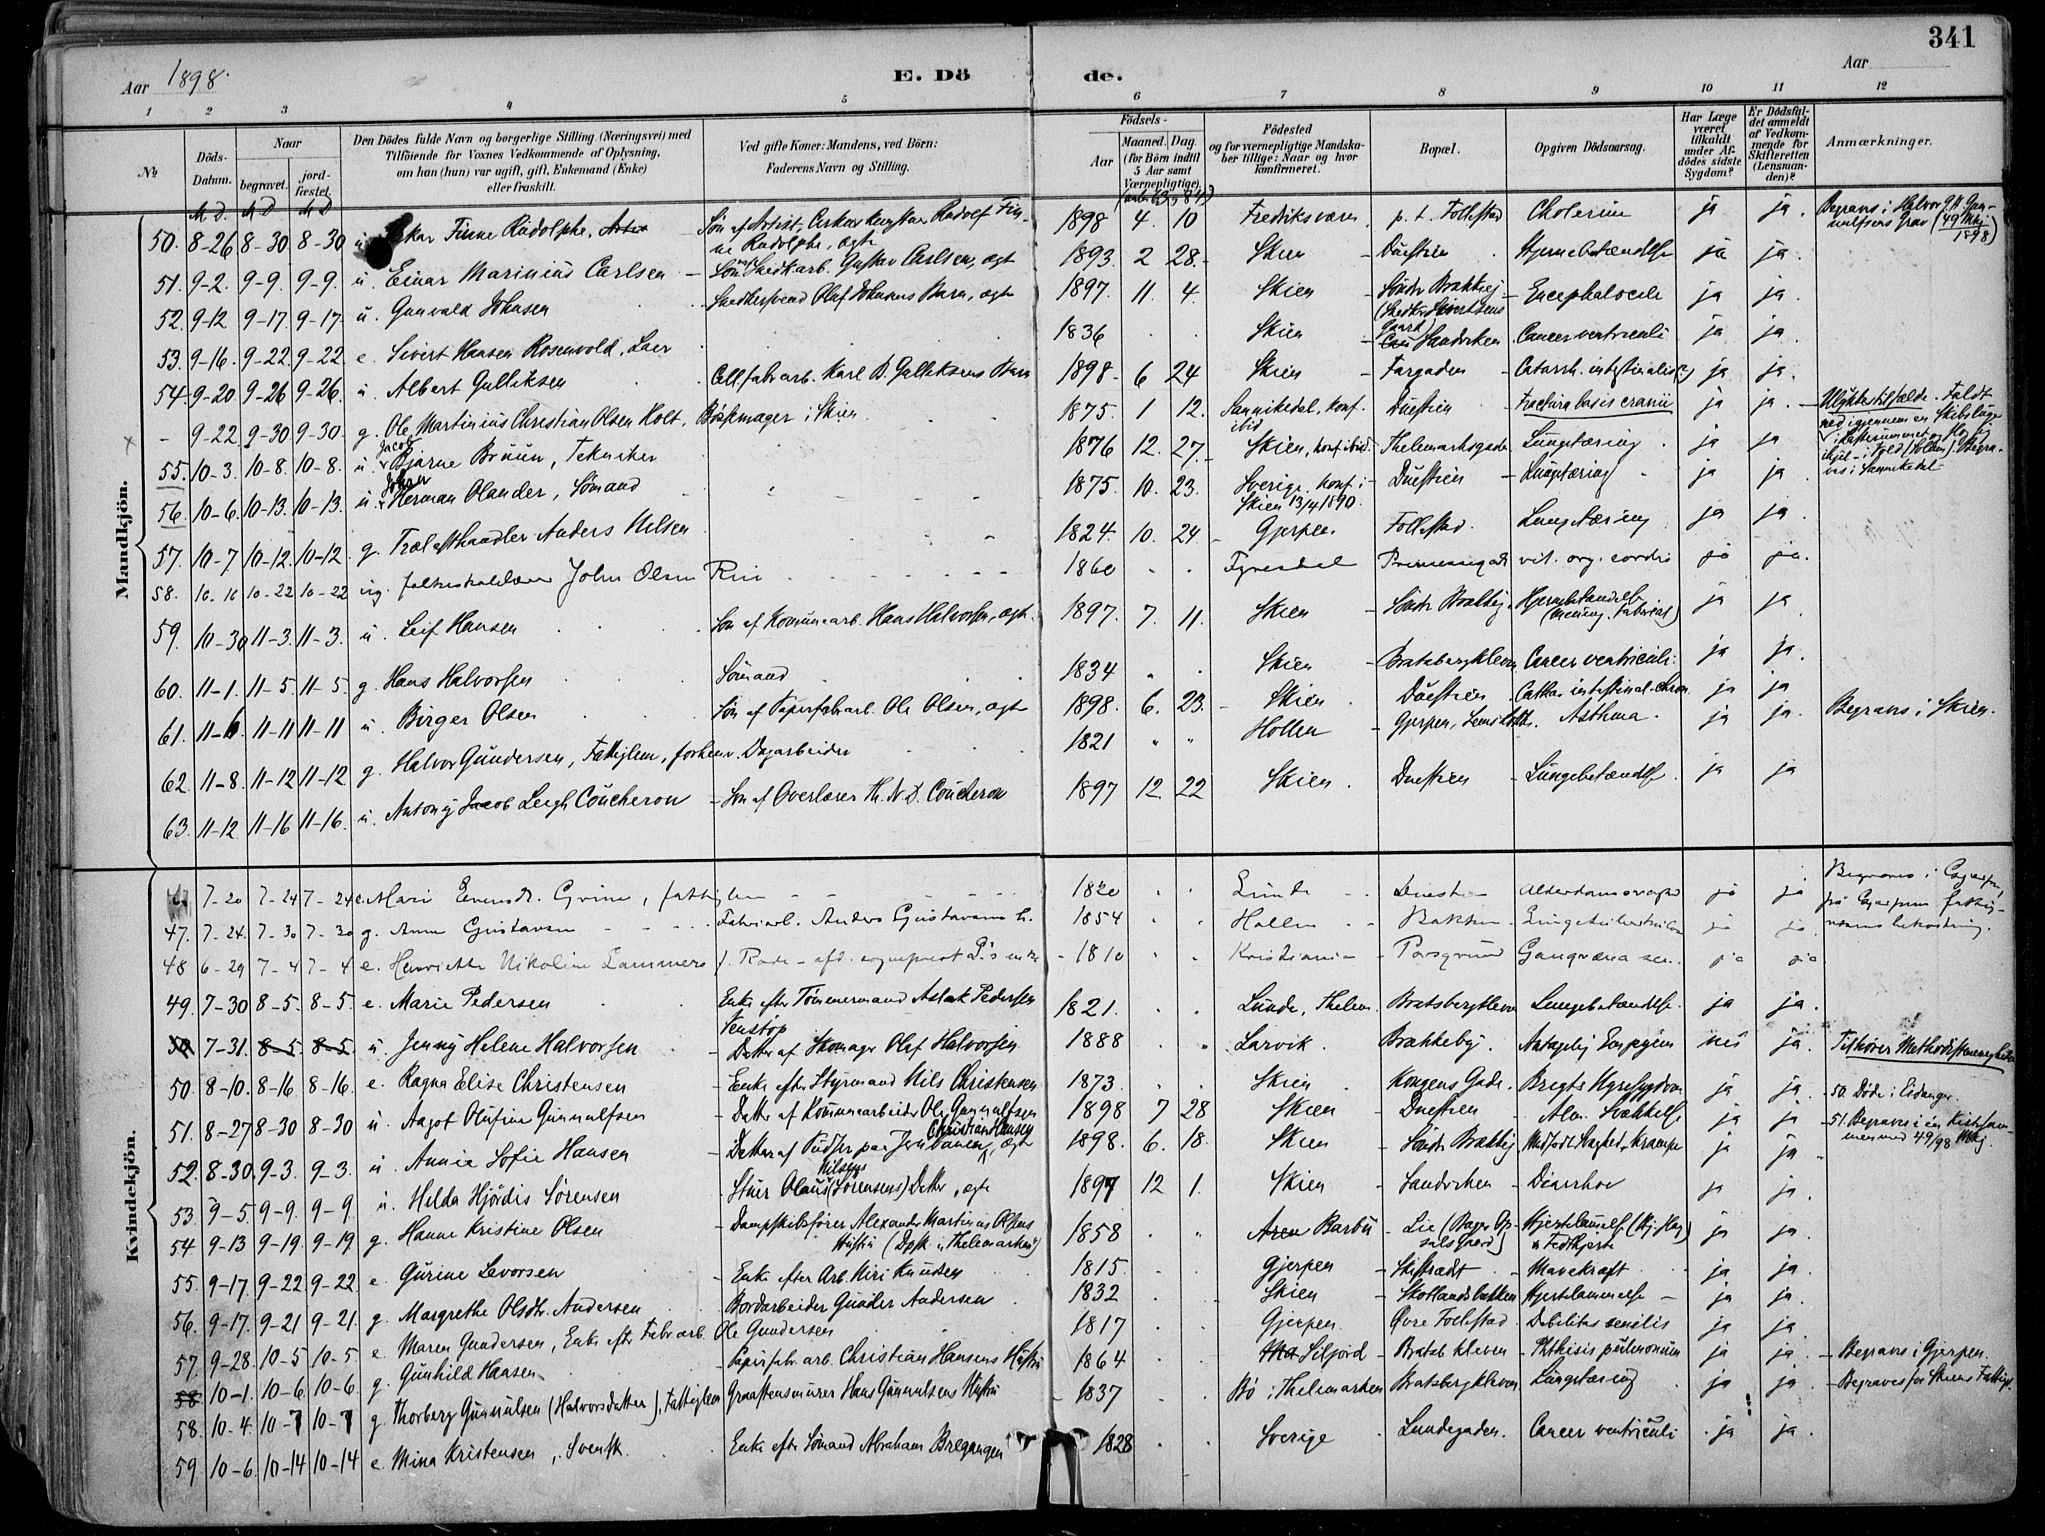 341
Aar 1898.
E. Döde.
Aar
1 2 3 4 5 6 7 8 9 10 11 12
No
Döds-Datum.
Naar
begravet.
jord-fæstet.
Den Dödes fulde Navn og borgerlige Stilling (Næringsvei) med Tilföiende for Voxnes Vedkommende af Oplysning, om han (hun) var ugift, gift, Enkemand (Enke) eller fraskilt.
Ved gifte Koner: Mandens, ved Börn: Faderens Navn og Stilling.
Födsels-
Aar
Maaned. Dag (for Börn indtil 5 Aar samt Værnepligtige)
Födested og for værnepligtige Mandskaber tillige: Naar og hvor konfirmeret.
Bopæl.
Opgiven Dödsaarsag.
Har Læge været tilkaldt under Afdödes sidste Sygdom?
Er Dödsfaldet anmeldt af Vedkommende for Skifteretten (Lensmanden)?
Anmærkninger.
M. D. M D M D
Mandkjön.
50. 8-26 8-30 8-30 u. Finne Rudolphe. Søn af Artist, Cirkus Rudolf Finne Rudolphe, ægte 1898 4. 10 Fredriksværn p. t. Follestad Cholerine ja ja. Begravs i Halvor Grav (49 Mkj. 1898)
51. 9-2. 9-9. 9-9. u. Einar Marinius Carlsen Søn af Snedkarb. Gustav Carlsen, ægt 1893. 2 28. Skien Duestien Hjernebetændelse ja ja.
52. 9-12 9-17 9-17. u. Gunvald Johnsen Snedkersvend Olaf Johnsens Barn, ægte 1897. 11. 4. Skien Søndr Brækkej (Snedker Sivertsens Gaard) Encephalocele ja ja.
53. 9-16. 9-22. 9-22 e. Sivert Hansen Rosenvold, Laer 1836 Skien Sandviken Cancer ventriculi ja ja
54. 9-20 9-26 9-26. u. Albert Gulliksen Cell. fabr arb. Karl D. Gulliksens Barn 1898 6 24 Skien Fargaden Catarrh. intestinalis ja ja.
- 9-22. 9-30 9-30. g. Ole Martinius Christian Olsen Holt. Bøssemager i Skien 1875. 1 12. Sannikedal, konf. ibid Duestien Fractura basis cranii ja ja. Ulykkestilfælde. Faldt ned igjennem en Skibsluge i Lasterummet og slog sig ihjel. Begraves i Sannikedal
55. 10-3. 10-8. 10-8. u. Jacob Bjarne Bruun, Tekniker 1876 12. 27. Skien, konf. ibid. Thelemarksgade Lungetæring ja ja
56. 10-6. 10-13. 10-13. u. Johan Herman Olander, Sømand 1875. 10. 23. Sverige. konf. i Skien 13/4 1890. Duestien Lungetæring ja ja
57. 10-7 10-12. 10-12. g. Trælasthandler Anders Nilsen 1824. 10. 24 Gjerpen Follestad. Lungetæring ja ja.
58. 10-16 10-22 10-22 ug. John Olsen Rui 1860 Fyresdal Prinsessegade vit. org. cordis ja ja.
59. 10-30 11-3. 11-3. u. Leif Hansen Søn af Komunearb. Hans Halvorsen, ægt. 1897. 7. 11. Skien Søndr Brækkej Hjernebetændelse (mening. tubercul.) ja ja
60. 11-1. 11-5 11-5. g. Hans Halvorsen Sømand 1834 Skien Bratsbergkleven Cancer ventriculi ja ja.
61. 11-6. 11-11 11-11 u. Birger Olsen Søn af Papirfabrarb. Ole Olsen, ægte 1898. 6. 23. Skien Duestien Cattar. intestinal. chron. ja ja
62. 11-8. 11-12 11-12 g. Halvor Gundersen, Fattiglem, forhenv. Dagarbeider 1821 Hollen Gjerpen, Asthma. ja ja. Begravs i Skien.
63. 11-12. 11-16 11-16. u. Antony Jacob Leigh Coucheron Søn af Overlærer Th. N. D. Coucheron 1897 12. 22 Skien. Duestien Lungebetændelse ja ja
Kvindekjön.
7-20 7-24 7-24 e. Mari Evensdt. Grini, fattiglem 1820 Lunde Duestien Alderdomssvaghed ja ja Begraves i Gjerpen paa Gjerpens fattigvæsens bekostning.
47. 7-24. 7-30 7-30 g. Anne Gustavsen Fabrikarb. Anders Gustavsens h. 1854 Hollen Bakken Lungetuberkulose ja ja
48 6-29 7-4 7-4 e. Henriette Nikoline Lammers f. Rode 1810 Kristiania Porsgrund Gangræna sen. ja ja
49. 7-30 8-5. 8-5. e. Marie Pedersen Enke efter Tømmermand Aslak Pedersen Venstøp 1821. Lunde, Thelem. Bratsbergkleven Lungebetændelse. ja ja.
50 7-31. 8-5 8-5. u. Jenny Helene Halvorsen Datter af Skomager Olaf Halvorsen 1888 Larvik. Brækkeby. Antagelig Empyem nei ja. Tilhører Methodistmenigheden
50 8-10. 8-16 8-16. e. Ragna Elise Christensen Enke efter Styrmand Nils Christensen 1873. Skien Kongens Gade. Brigts Nyresygdom ja ja. 50. Døde i Eidanger.
51. 8-27 8-30 8-30 u. Aagot Olufine Gunnulfsen Datter af Komunearbeider Ole Gunnulfsen 1898 7 28 Skien Duestien Alm. Svækkelse ja ja 51. Begraves i en Kiste sammen med 49/98 Mkj.
52. 8-30. 9-3. 9-3. u. Annie Sofie Hansen Datter af Pudser paa Jernbanen Christian Hansen, ægt 1898. 6. 18. Skien Søndr Brækkej Medfødt Svaghed, Krampe ja ja
53. 9-5. 9-9. 9-9. u. Hilda Hjørdis Sørensen Stuer Olaus Nilsens (Sørensens) Datter, ægte 1897 12 1. Skien Sandviken Diarrhoe ja ja.
54 9-13 9-19. 9-19 g. Hanne Kristine Olsen Dampskibsfører Alexander Martinius Olsens Hustru (Dpsk. "Thelemarken") 1858 Aren Barbu Lie Hjertelammelse Fedthjerte ja ja.
55. 9-17. 9-22 9-22. e. Gurine Levorsen Enke efter Arb. Niri Knudsen 1815. Gjerpen Skistrædt Mavekræft ja ja.
56. 9-17. 9-21 9-21. g. Margrethe Olsdtr. Andersen Bordarbeider Gunder Andersen 1832 Skien Skotlandsbakken Hjertelammelse ja ja.
57. 9-28. 10-5 10-5 e. Maren Gundersen, Enke eftr Fabr arb. Ole Gundersen 1817 Gjerpen. Øvre Follestad Debilitas senilis ja ja
58 10-1. 10-6. 10-6. g. Gunhild Hansen Papirfabr. arb. Christian Hansens Hustru 1864 Siljord Bratsb. kleven Phthisis pulmonum ja ja. Begravs i Gjerpen.
58. 10-4. 10-7 10-7 g. Thorberg Gunnulsen (Halvorsdatter), Fattiglem Graastensmurer Hans Gunnulsens Hustru 1837 Bø i Thelemarken Bratsbergkleven Lungetæring ja ja. Begraves for Skiens Fattigv.
59. 10-6. 10-14 10-14 e. Mina Kristensen, Svensk. Enke eftr Sømand Abraham Bregangen 1828 Sverige Lundegaden. Cancer ventriculi ja ja.